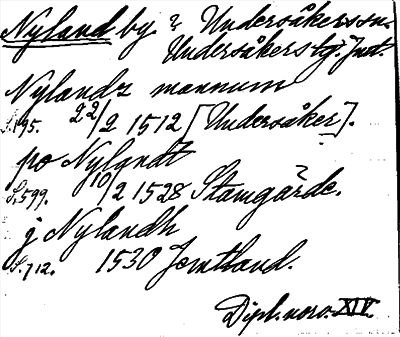 Nyland by i Undersåkers sn.
Undersåkers tg. Jmt.
Nylandz mannum
S. 195. 22/2 1512 [Undersåker].
po Nylandt
S. 599. 10/2 1528 Stamgärde.
j Nylandh
S. 712. 1530 Jemtland.
Dipl. norv. XIV.